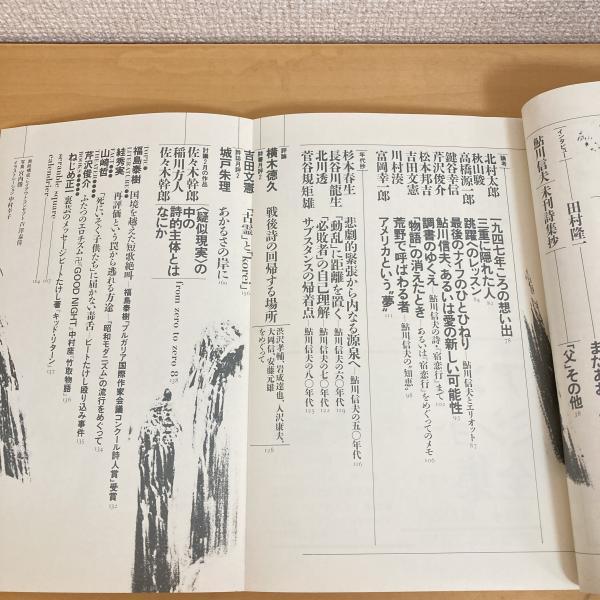 インタビュー
田村隆一
またあお
「父」その他
鮎川信夫／未刊詩集抄
論考
北村太郎 一九四七年ころの想い出 78
秋山駿 三重に隠れた人 82
高橋源一郎 跳躍へのレッスン 鮎川信夫とエリオット 87
鍵谷幸信 最後のナイフのひとひねり
芹沢俊介 鮎川信夫、あるいは愛の新しい可能性
松本邦吉 調書のゆくえ 鮎川信夫の詩・「宿恋行」まで
吉田文憲 “物語”の消えたとき あるいは、「宿恋行」をめぐってのメモ 106
川村湊 荒野で呼ばわる者 鮎川信夫の“知恵” 98
富岡幸一郎 アメリカという“夢” 111
年代抄
杉本春生 悲劇的緊張から内なる源泉へ 鮎川信夫の五〇年代 116
長谷川龍生 「動乱」に距離を置く 鮎川信夫の六〇年代 119
北川透 「必敗者」の自己理解 鮎川信夫の七〇年代 122
菅谷規矩雄 サブスタンスの帰着点 鮎川信夫の八〇年代 125
評論
横木徳久 戦後詩の回帰する場所 渋沢孝輔、岩成達也、入沢康夫、大岡信、安藤元雄をめぐって 128
詩書月評
吉田文憲 「古霊」と「korei」 156
詩誌月評
城戸朱理 あかるさの岸に 160
討議 2月の作品
佐々木幹郎
稲川方人
佐々木幹郎
〈疑似現実〉の中の詩的主体とはなにか
from zero to zero 8 138
TOPIC
福島泰樹 国境を越えた短歌絶叫 福島泰樹「ブルガリア国際作家会議コンクール詩人賞」受賞 132
LITERATURE
絓秀実 再評価という罠から逃れる方途 「昭和モダニズム」の流行をめぐって 134
山崎哲 「死にいそぐ子供たち」に届かない毒舌 ビートたけし殴り込み事件 135
THEATRE
芹沢俊介 ふたつのエロチスム 卍「GOOD NIGHT」、中村座「竹取物語」 136
BOOK
ねじめ正一 裏芸のメッセージ ビートたけし著「キッド・リターン」
scramble square
calembrier
164
167
表紙構成＝芦澤泰偉
写真＝宮内勝